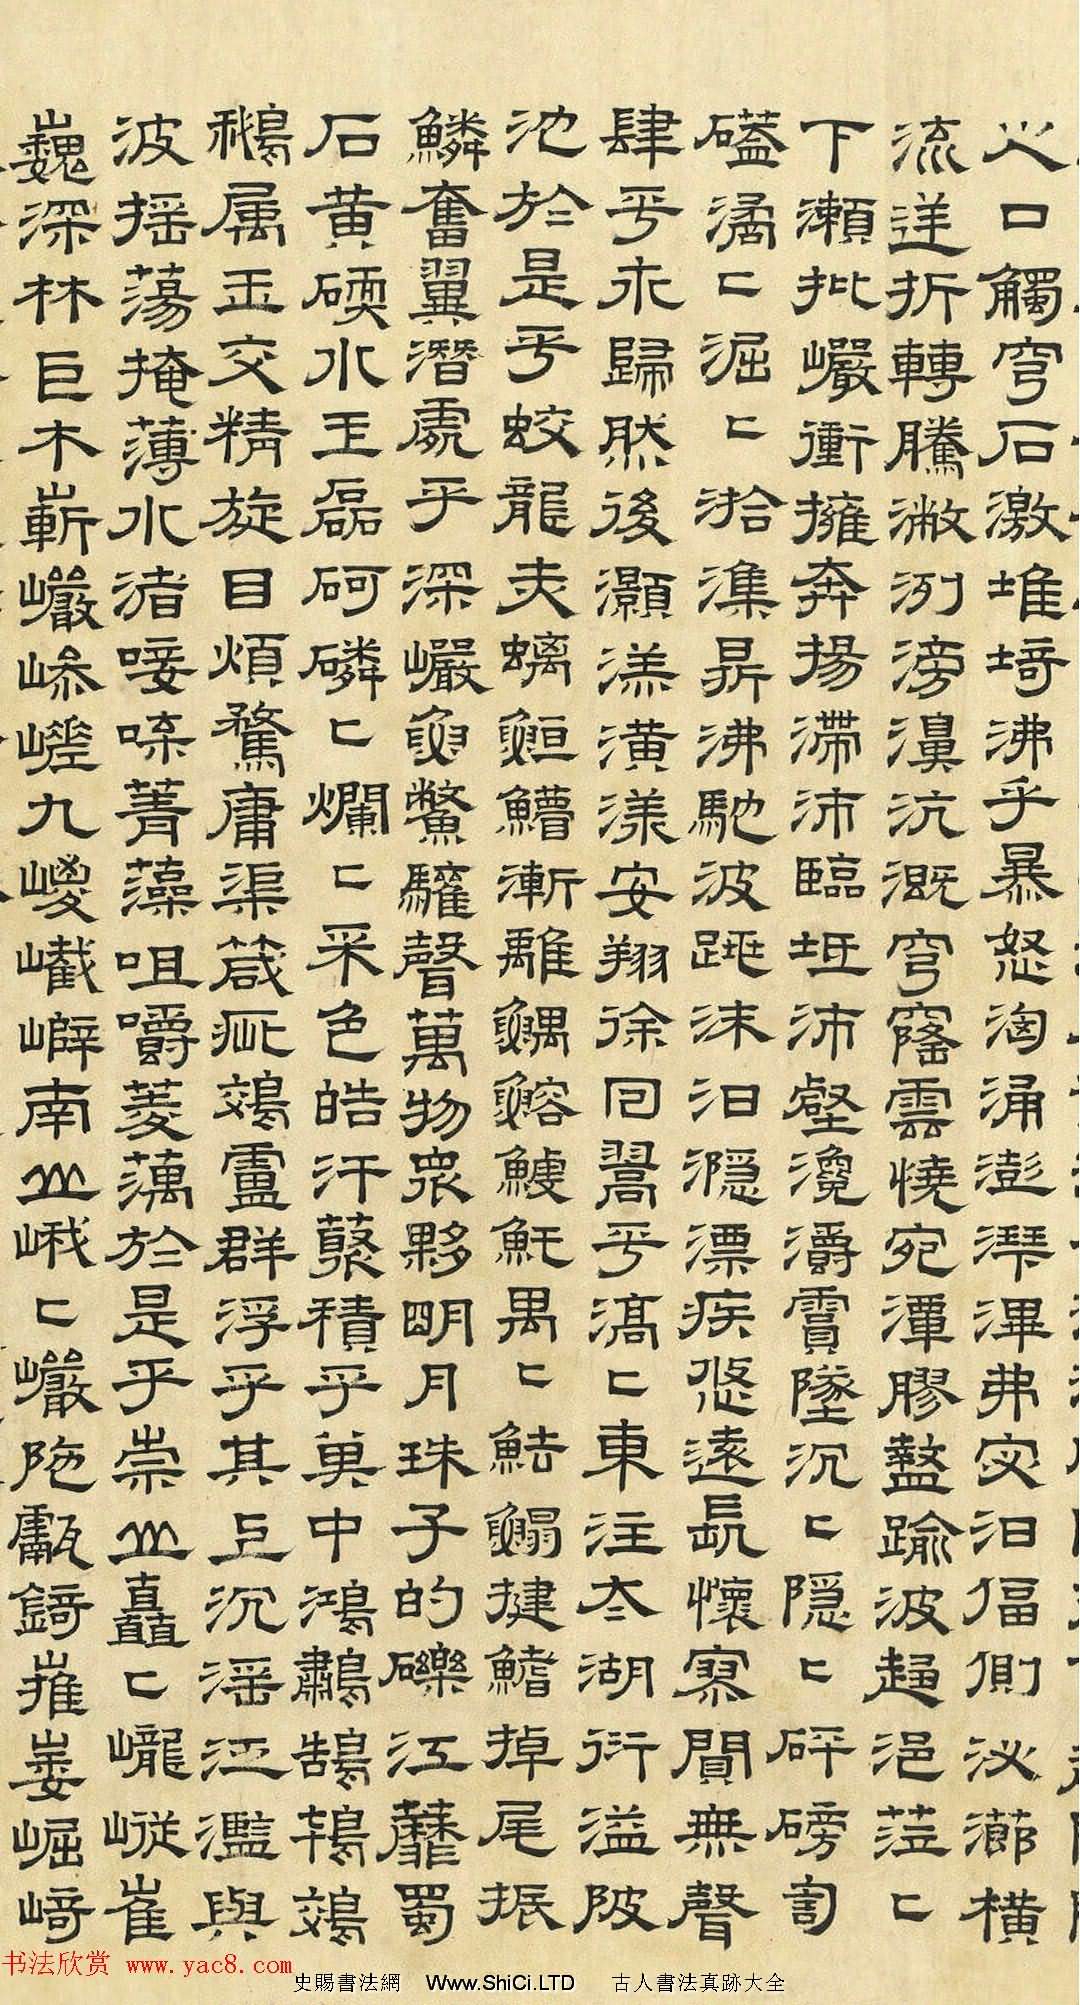 之口觸穹石激堆埼沸乎暴怒洶涌澎湃渾弗宓汨偪側泌瀄橫
流逆折轉騰潎洌滂濞沆溉穹窿雲橈宛潬膠盭踰波趨浥蒞〻
下瀨批巖衝擁奔揚滯沛臨坻沛壑瀺灂霣墜沉〻隱〻砰磅訇
礚潏〻淈〻湁潗鼎沸馳波跳沫汩㶏漂疾悠遠長懷寂𨵵無聲
肆乎永歸然後灝溔潢漾安翔徐回翯乎滈〻東注太湖衍溢陂
池於是乎蛟龍赤螭䱎鰽漸離鰅鰫鰬魠禺〻魼鰨揵鰭掉尾振
鱗奮翼潛處乎深巖魚鱉驩聲萬物眾夥明月珠子的礫江靡蜀
石黃碝水玉磊砢磷〻爛〻采色皓汗藂積乎其中鴻鷫鵠鴇鴐
鵝属玉交精旋目煩鶩庸渠箴疵鵁盧群浮乎其上沉淫泛濫與
波搖蕩掩薄水渚唼喋菁藻咀嚼菱藕於是乎崇山矗〻巃嵷崔
巍深林巨木嶄巖嵾嵳九嵕嶻嶭南山峨〻巖陁甗錡摧崣崛崎
书法欣赏 www.yac8.com
史賜書法網 Www.ShiCi.LTD 古人書法真跡大全